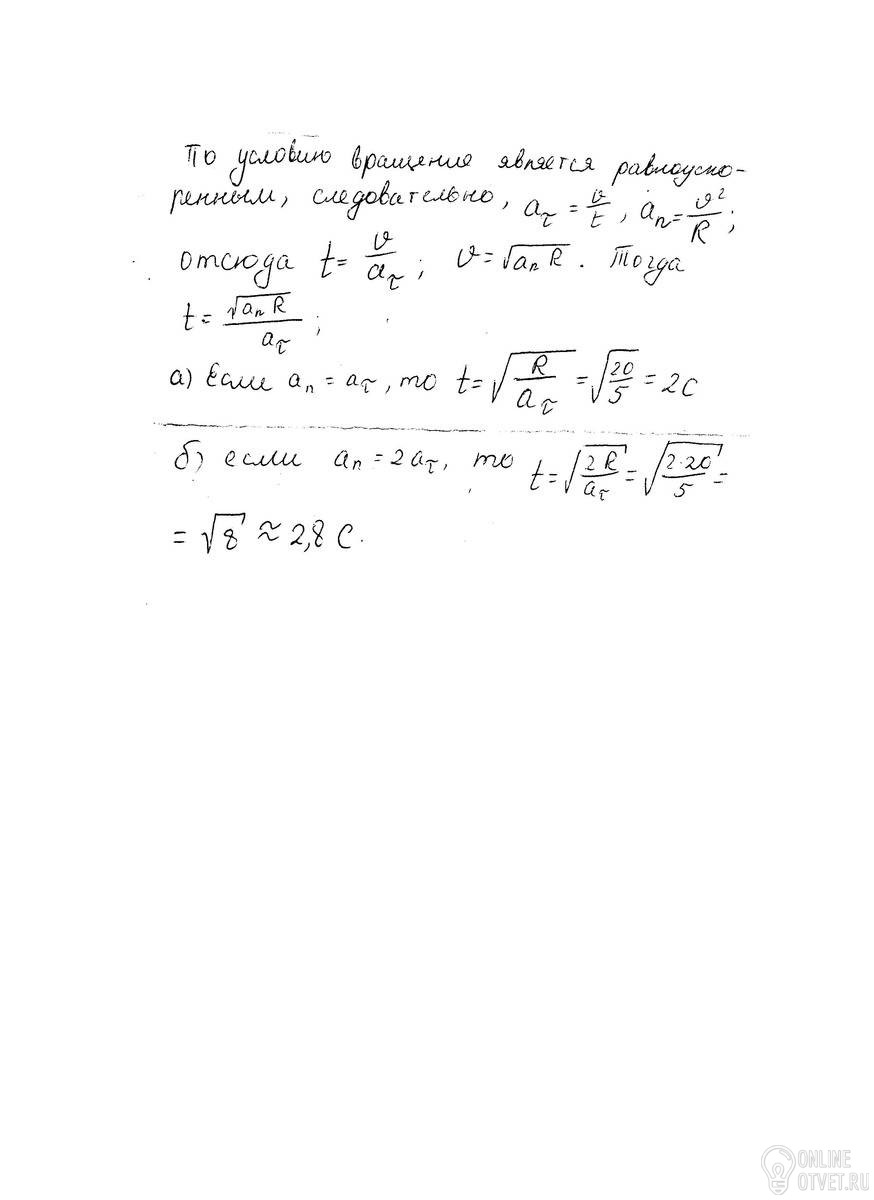 По условию вращение является равноуско-
ренным, следовательно, a_τ = v/t, a_n = v²/R;
отсюда t = v/a_τ; v = √(a_n R). Тогда
t = √(a_n R)/a_τ;
а) Если a_n = a_τ, то t = √(R/a_τ) = √(20/5) = 2 с
б) если a_n = 2a_τ, то t = √(2R/a_τ) = √(2·20/5) =
= √8 ≈ 2,8 с.
ONLINE
OTVET.RU